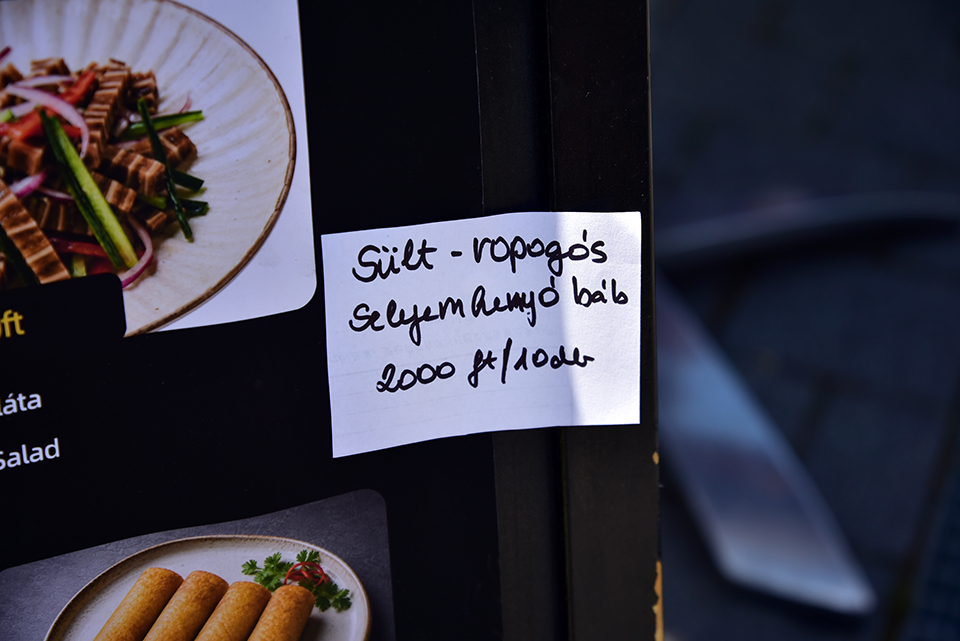 Sült - ropogós
selyemhernyó báb
2000 ft/10db
ft
láta
Salad